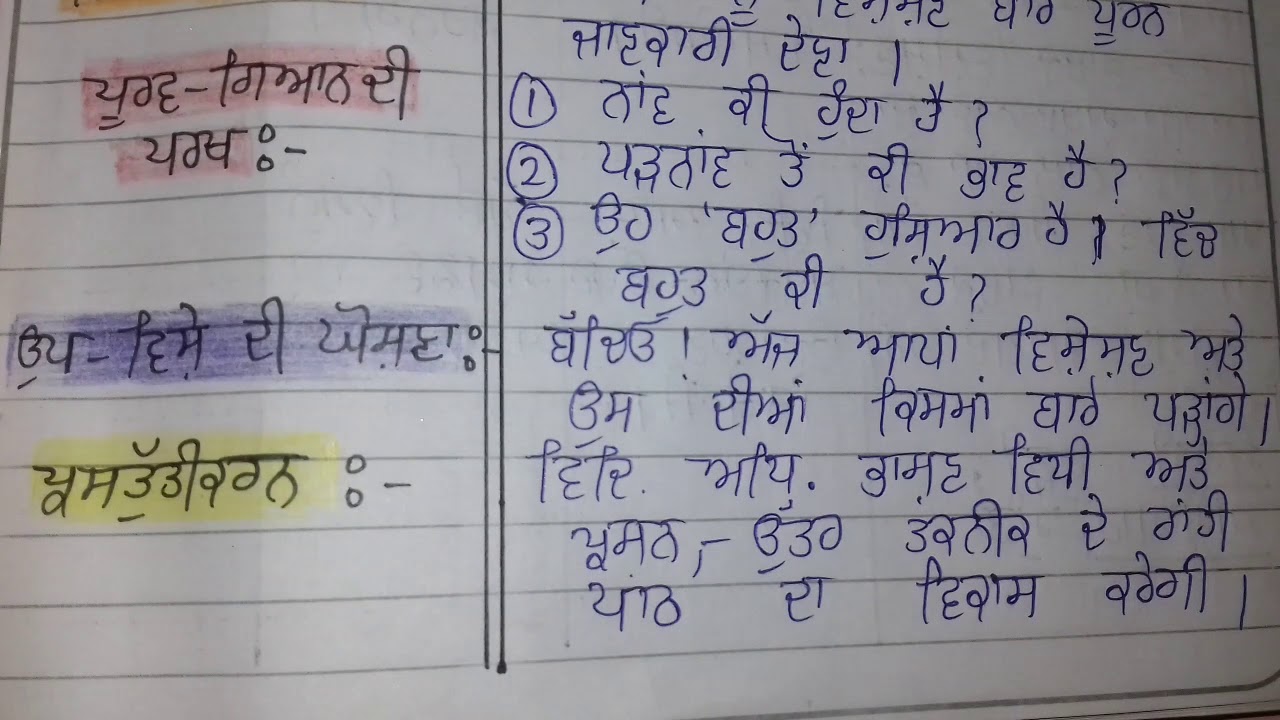 ਵਿਸ਼ੇਸ਼ਣ ਬਾਰੇ ਪੂਰਨ
ਜਾਣਕਾਰੀ ਦੇਣਾ ।
ਪੂਰਵ-ਗਿਆਨ ਦੀ
ਪਰਖ :-
① ਨਾਂਵ ਕੀ ਹੁੰਦਾ ਹੈ ?
② ਪੜਨਾਂਵ ਤੋਂ ਕੀ ਭਾਵ ਹੈ ?
③ ਉਹ 'ਬਹੁਤ' ਹੁਸ਼ਿਆਰ ਹੈ । ਵਿੱਚ
ਬਹੁਤ ਕੀ ਹੈ ?
ਉਪ-ਵਿਸ਼ੇ ਦੀ ਘੋਸ਼ਣਾ :-
ਬੱਚਿਓ ! ਅੱਜ ਆਪਾਂ ਵਿਸ਼ੇਸ਼ਣ ਅਤੇ
ਉਸ ਦੀਆਂ ਕਿਸਮਾਂ ਬਾਰੇ ਪੜ੍ਹਾਂਗੇ ।
ਪ੍ਰਸਤੁੱਤੀਕਰਨ :-
ਵਿੱਦਿ. ਅਧਿ. ਭਾਸ਼ਣ ਵਿਧੀ ਅਤੇ
ਪ੍ਰਸ਼ਨ,- ਉੱਤਰ ਤਕਨੀਕ ਦੇ ਰਾਹੀਂ
ਪਾਠ ਦਾ ਵਿਕਾਸ ਕਰੇਗੀ ।